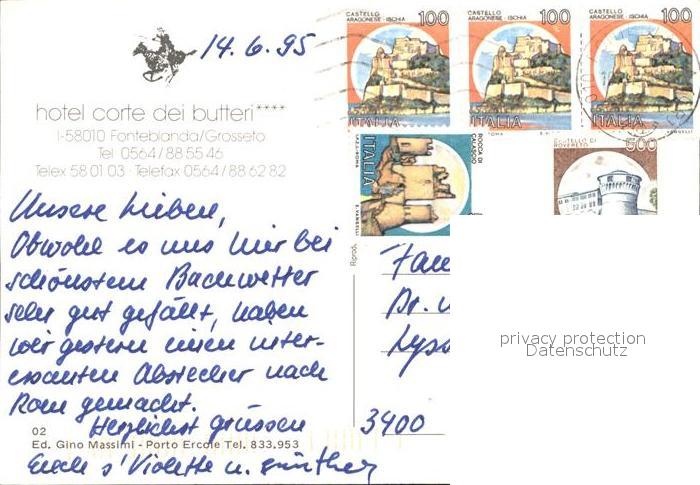 14.6.95
hotel corte dei butteri****
I-58010 Fonteblanda/Grosseto
Tel 0564/88 55 46
Telex 58 01 03 · Telefax 0564/88 62 82
CASTELLO ARAGONESE - ISCHIA 100
ITALIA
CASTELLO ARAGONESE - ISCHIA 100
ITALIA
CASTELLO ARAGONESE - ISCHIA 100
ITALIA
ROCCA DI CALASCIO
ITALIA
500
CASTELLO DI ROVERETO
Unsere Lieben,
Obwohl es uns hier bei
schönstem Badewetter
sehr gut gefällt, haben
wir gestern einen inter-
essanten Abstecher nach
Rom gemacht.
Herzlichst grüssen
Euch s'Violette u. Günther
Fam
Dr.
3400
privacy protection
Datenschutz
02
Ed. Gino Massimi - Porto Ercole Tel. 833.953